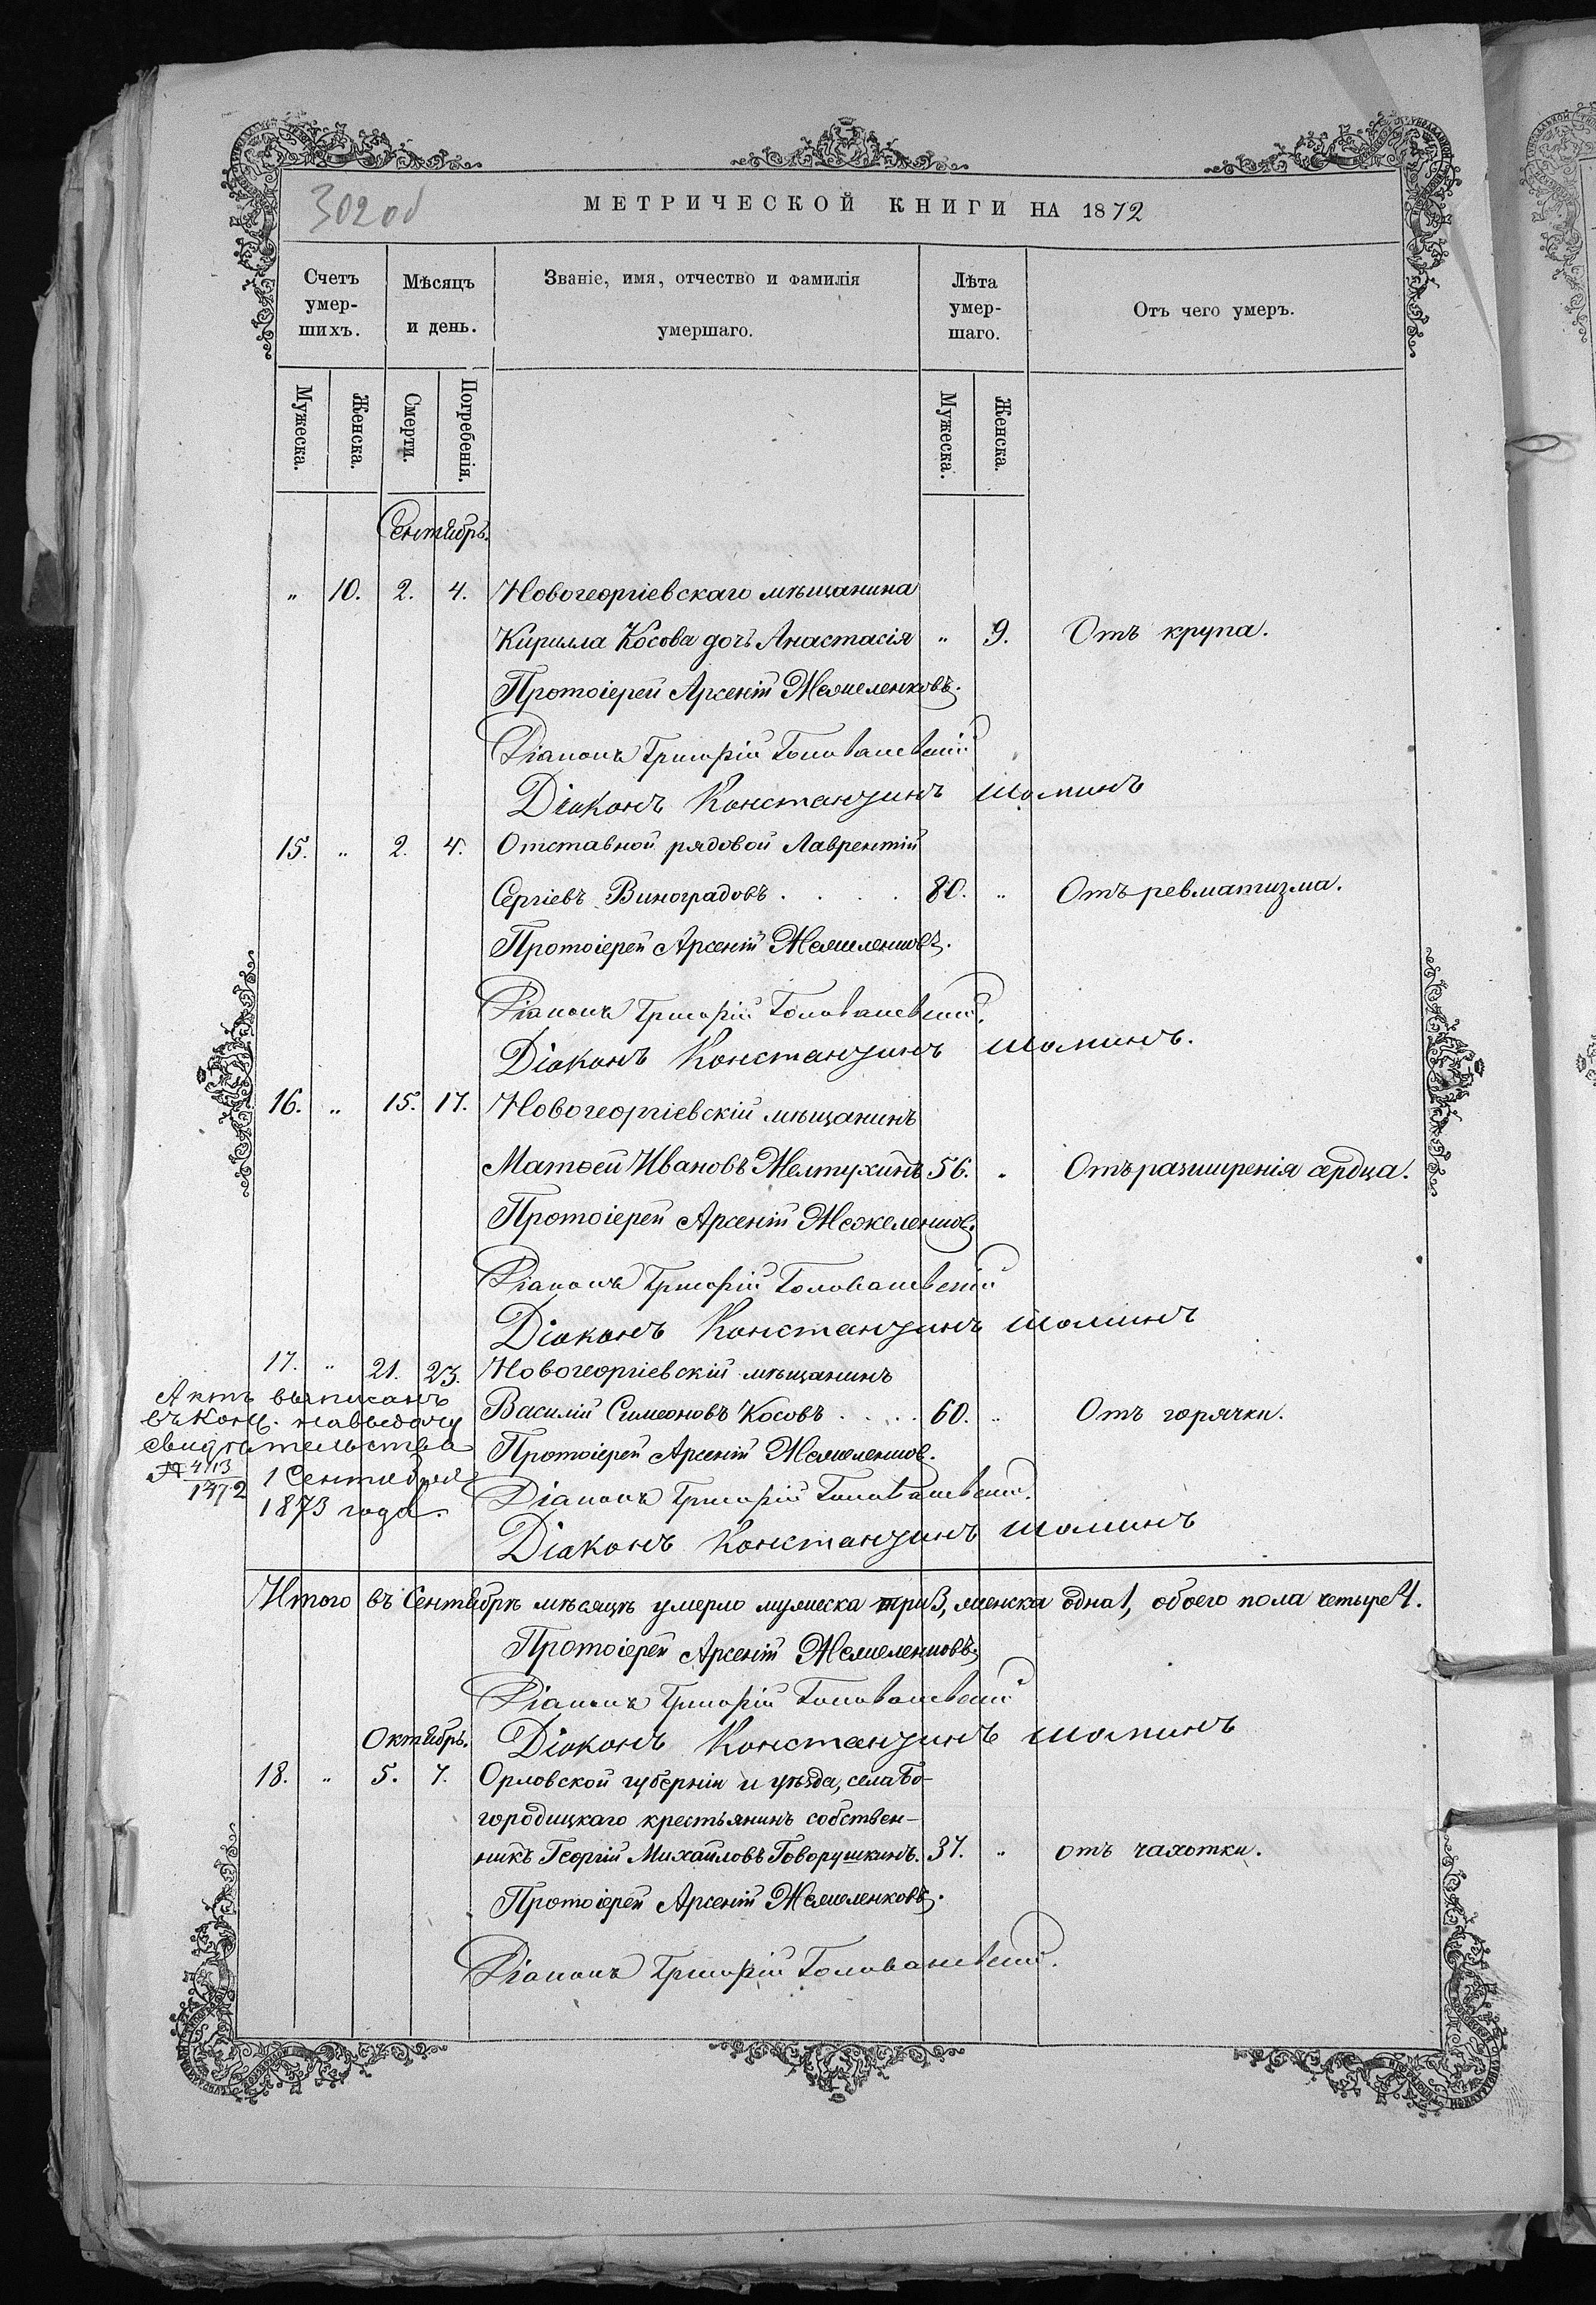 302 об
МЕТРИЧЕСКОЙ КНИГИ НА 1872
Счетъ умер-шихъ.
Мѣсяцъ и день.
Званіе, имя, отчество и фамилія умершаго.
Лѣта умер-шаго.
Отъ чего умеръ.
Мужеска. Женска. Смерти. Погребенія. Мужеска. Женска.
Сентябрь.
" 10. 2. 4. Новогеоргіевскаго мѣщанина
Кирилла Косова дочь Анастасія " 9. Отъ крупа.
Протоіерей Арсеній
Діаконъ Григорій
Діаконъ Константинъ Шоминъ
15. " 2. 4. Отставной рядовой Лаврентій
Сергіевъ Виноградовъ . . . . 80. " Отъ ревматизма.
Протоіерей Арсеній
Діаконъ Григорій
Діаконъ Константинъ Шоминъ.
16. " 15. 17. Новогеоргіевскій мѣщанинъ
Матѳей Ивановъ Желтухинъ 56. " Отъ разширенія сердца.
Протоіерей Арсеній
Діаконъ Григорій
Діаконъ Константинъ Шоминъ
17. " 21. 23. Новогеоргіевскій мѣщанинъ
Василій Симеоновъ Косовъ . . . . 60. " Отъ горячки.
Протоіерей Арсеній
Діаконъ Григорій
Діаконъ Константинъ Шоминъ
Актъ выписанъ
въ Конс. на выдачу
свидѣтельства
№ 1 Сентября
1873 года.
Итого въ Сентябрѣ мѣсяцѣ умерло мужеска три 3, женска одна 1, обоего пола четыре 4.
Протоіерей Арсеній
Діаконъ Григорій
Діаконъ Константинъ Шоминъ
Октябрь.
18. " 5. 7. Орловской губерніи и уѣзда, села Бо-
городицкаго крестьянинъ собствен-
никъ Георгій Михайловъ Говорушкинъ. 37. " отъ чахотки.
Протоіерей Арсеній
Діаконъ Григорій